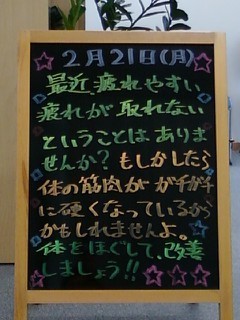 2月21日(月)
最近疲れやすい
疲れが取れない
ということはありま
せんか?もしかしたら
体の筋肉がガチガチ
に硬くなっているから
かもしれませんよ。
体をほぐして、改善
しましょう!!